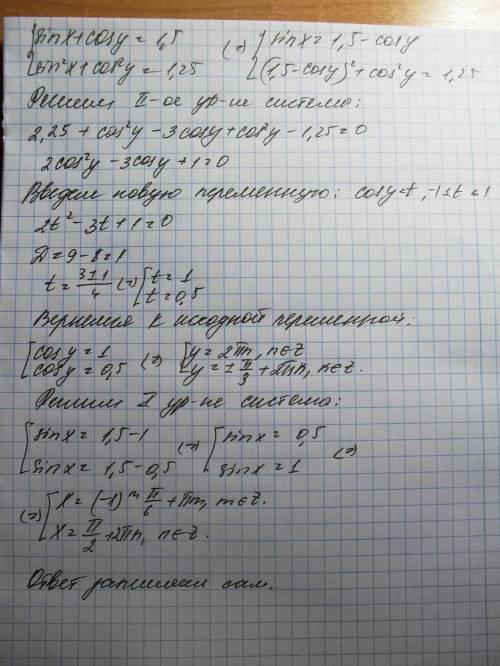 { sinx + cosy = 1,5 (=) { sinx = 1,5 - cosy
{ sin²x + cos²y = 1,25 { (1,5 - cosy)² + cos²y = 1,25
Решим II-ое ур-ие системы:
2,25 + cos²y - 3cosy + cos²y - 1,25 = 0
2cos²y - 3cosy + 1 = 0
Введем новую переменную: cosy = t, -1 ≤ t ≤ 1
2t² - 3t + 1 = 0
D = 9 - 8 = 1
t = (3 ± 1)/4 (=) [ t = 1
[ t = 0,5
Вернемся к исходной переменной:
[ cosy = 1 (=) [ y = 2πn, n ∈ Z
[ cosy = 0,5 [ y = ± π/3 + 2πn, n ∈ Z.
Решим I ур-ие системы:
[ sinx = 1,5 - 1 (=) [ sinx = 0,5 (=)
[ sinx = 1,5 - 0,5 [ sinx = 1
(=) [ x = (-1)ᵐ π/6 + πm, m ∈ Z.
[ x = π/2 + 2πn, n ∈ Z.
Ответ запишеш сам.